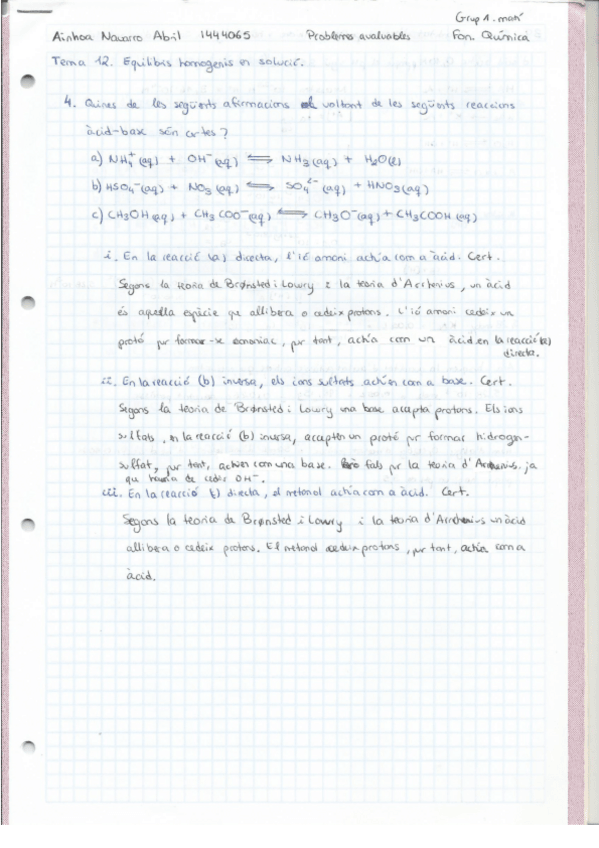 Grup 1. matí
Ainhoa Navarro Abril 1444065 Problemes avaluables Fon. Química
Tema 12. Equilibris homogenis en solució.
4. Quines de les següents afirmacions al voltant de les següents reaccions
àcid-base són certes?
a) NH₄⁺(aq) + OH⁻(aq) ⇌ NH₃(aq) + H₂O(l)
b) HSO₄⁻(aq) + NO₃(aq) ⇌ SO₄²⁻(aq) + HNO₃(aq)
c) CH₃OH(aq) + CH₃COO⁻(aq) ⇌ CH₃O⁻(aq) + CH₃COOH (aq)
i. En la reacció (a) directa, l'ió amoni actúa com a àcid. Cert.
Segons la teoria de Brønsted i Lowry i la teoria d'Arrhenius, un àcid
és aquella espècie que allibera o cedeix protons. L'ió amoni cedeix un
protó per formar-se amoniac, per tant, actúa com un àcid en la reacció (a)
directa.
ii. En la reacció (b) inversa, els ions sulfats actúen com a base. Cert.
Segons la teoria de Brønsted i Lowry una base accepta protons. Els ions
sulfats, en la reacció (b) inversa, accepten un protó per formar hidrogen-
sulfat, per tant, actúen com una base. fals per la teoria d'Arrhenius. ja
que hauria de cedir OH⁻.
iii. En la reacció directa, el metanol actúa com a àcid. Cert.
Segons la teoria de Brønsted i Lowry i la teoria d'Arrhenius un àcid
allibera o cedeix protons. El metanol cedeix protons, per tant, actúa com a
àcid.